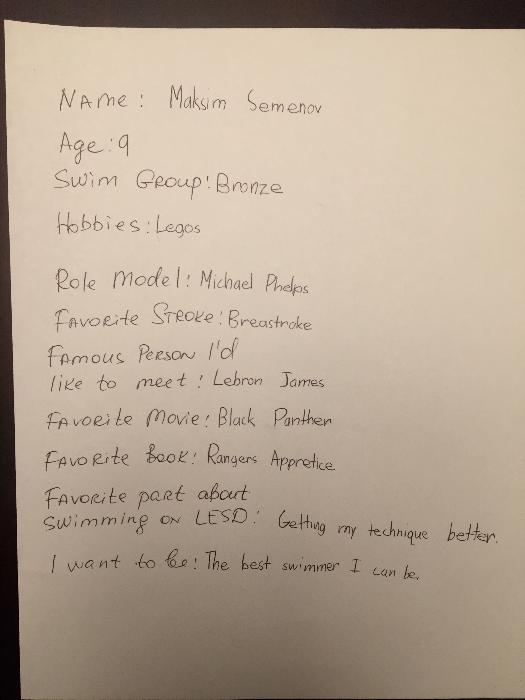 Name: Maksim Semenov
Age: 9
Swim Group: Bronze
Hobbies: Legos
Role Model: Michael Phelps
Favorite Stroke: Breastroke
Famous Person I'd
like to meet: Lebron James
Favorite Movie: Black Panther
Favorite Book: Rangers Appretice
Favorite part about
swimming on LESD: Getting my technique better.
I want to be: The best swimmer I can be.